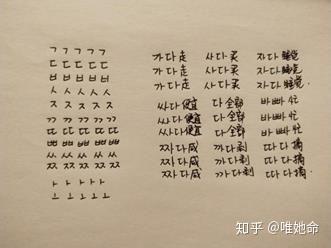 ㄱ ㄱ ㄱ ㄱ ㄱ
ㄷ ㄷ ㄷ ㄷ ㄷ
ㅂ ㅂ ㅂ ㅂ ㅂ
ㅅ ㅅ ㅅ ㅅ ㅅ
ㅈ ㅈ ㅈ ㅈ ㅈ
ㄲ ㄲ ㄲ ㄲ ㄲ
ㄸ ㄸ ㄸ ㄸ ㄸ
ㅃ ㅃ ㅃ ㅃ ㅃ
ㅆ ㅆ ㅆ ㅆ ㅆ
ㅉ ㅉ ㅉ ㅉ ㅉ
ㅏ ㅏ ㅏ ㅏ ㅏ
ㅗ ㅗ ㅗ ㅗ ㅗ
가다走 사다买 자다睡觉
가다走 사다买 자다睡觉
가다走 사다买 자다睡觉
싸다便宜 다全部 바빠忙
싸다便宜 다全部 바빠忙
싸다便宜 다全部 바빠忙
짜다咸 까다剥 따다摘
짜다咸 까다剥 따다摘
짜다咸 까다剥 따다摘
知乎 @唯她命